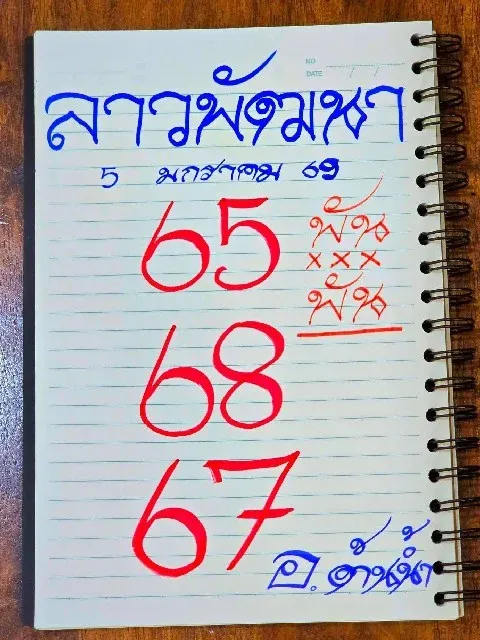 NO
DATE / /
ลาวพัฒนา
5 มกราคม 69
65 พัน
xxx
พัน
68
67
อ.